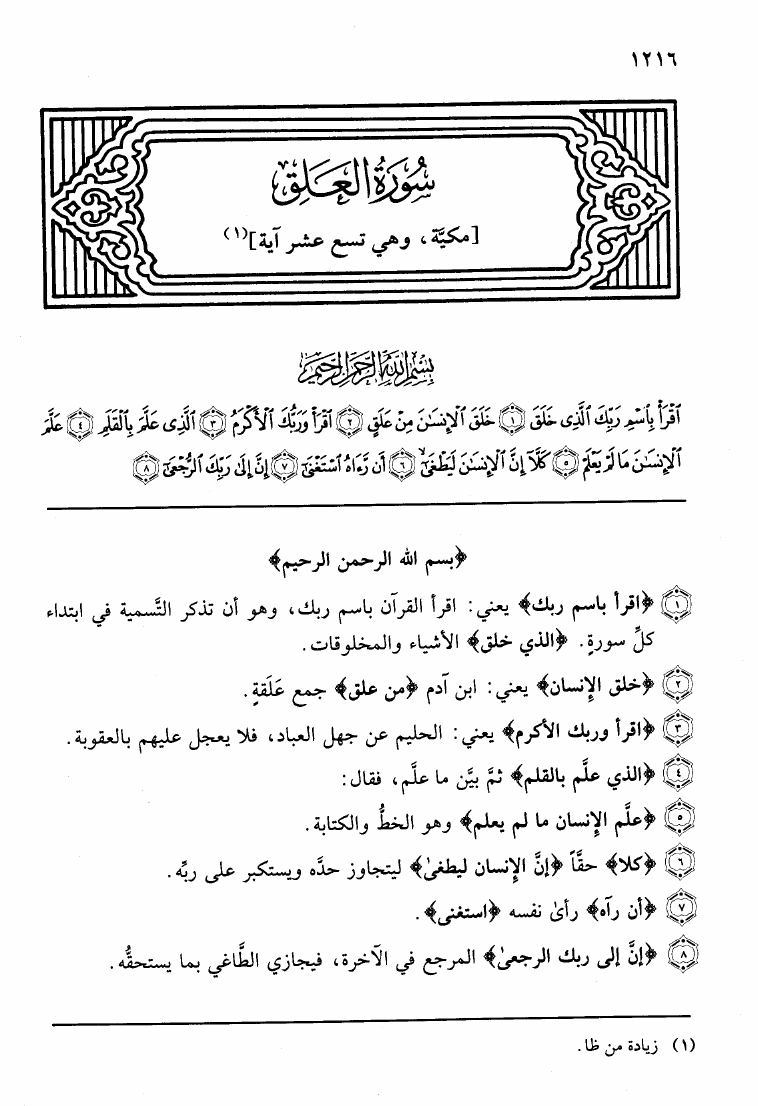 ١٢١٦
سُورَةُ العَلَقِ
[مكيَّة، وهي تسع عشر آية](١)
بِسْمِ اللَّهِ الرَّحْمَٰنِ الرَّحِيمِ
ٱقْرَأْ بِٱسْمِ رَبِّكَ ٱلَّذِى خَلَقَ ١ خَلَقَ ٱلْإِنسَٰنَ مِنْ عَلَقٍ ٢ ٱقْرَأْ وَرَبُّكَ ٱلْأَكْرَمُ ٣ ٱلَّذِى عَلَّمَ بِٱلْقَلَمِ ٤ عَلَّمَ
ٱلْإِنسَٰنَ مَا لَمْ يَعْلَمْ ٥ كَلَّآ إِنَّ ٱلْإِنسَٰنَ لَيَطْغَىٰٓ ٦ أَن رَّءَاهُ ٱسْتَغْنَىٰٓ ٧ إِنَّ إِلَىٰ رَبِّكَ ٱلرُّجْعَىٰٓ ٨
﴿بسم الله الرحمن الرحيم﴾
١ ﴿اقرأ باسم ربك﴾ يعني: اقرأ القرآن باسم ربك، وهو أن تذكر التَّسمية في ابتداء
كلِّ سورةٍ. ﴿الذي خلق﴾ الأشياء والمخلوقات.
٢ ﴿خلق الإنسان﴾ يعني: ابن آدم ﴿من علق﴾ جمع عَلَقةٍ.
٣ ﴿اقرأ وربك الأكرم﴾ يعني: الحليم عن جهل العباد، فلا يعجل عليهم بالعقوبة.
٤ ﴿الذي علَّم بالقلم﴾ ثمَّ بيَّن ما علَّم، فقال:
٥ ﴿علَّم الإنسان ما لم يعلم﴾ وهو الخطُّ والكتابة.
٦ ﴿كلا﴾ حقَّاً ﴿إنَّ الإنسان ليطغىٰ﴾ ليتجاوز حدَّه ويستكبر على ربِّه.
٧ ﴿أن رآه﴾ رأىٰ نفسه ﴿استغنى﴾.
٨ ﴿إنَّ إلى ربك الرجعىٰ﴾ المرجع في الآخرة، فيجازي الطَّاغي بما يستحقُّه.
(١) زيادة من ظا.